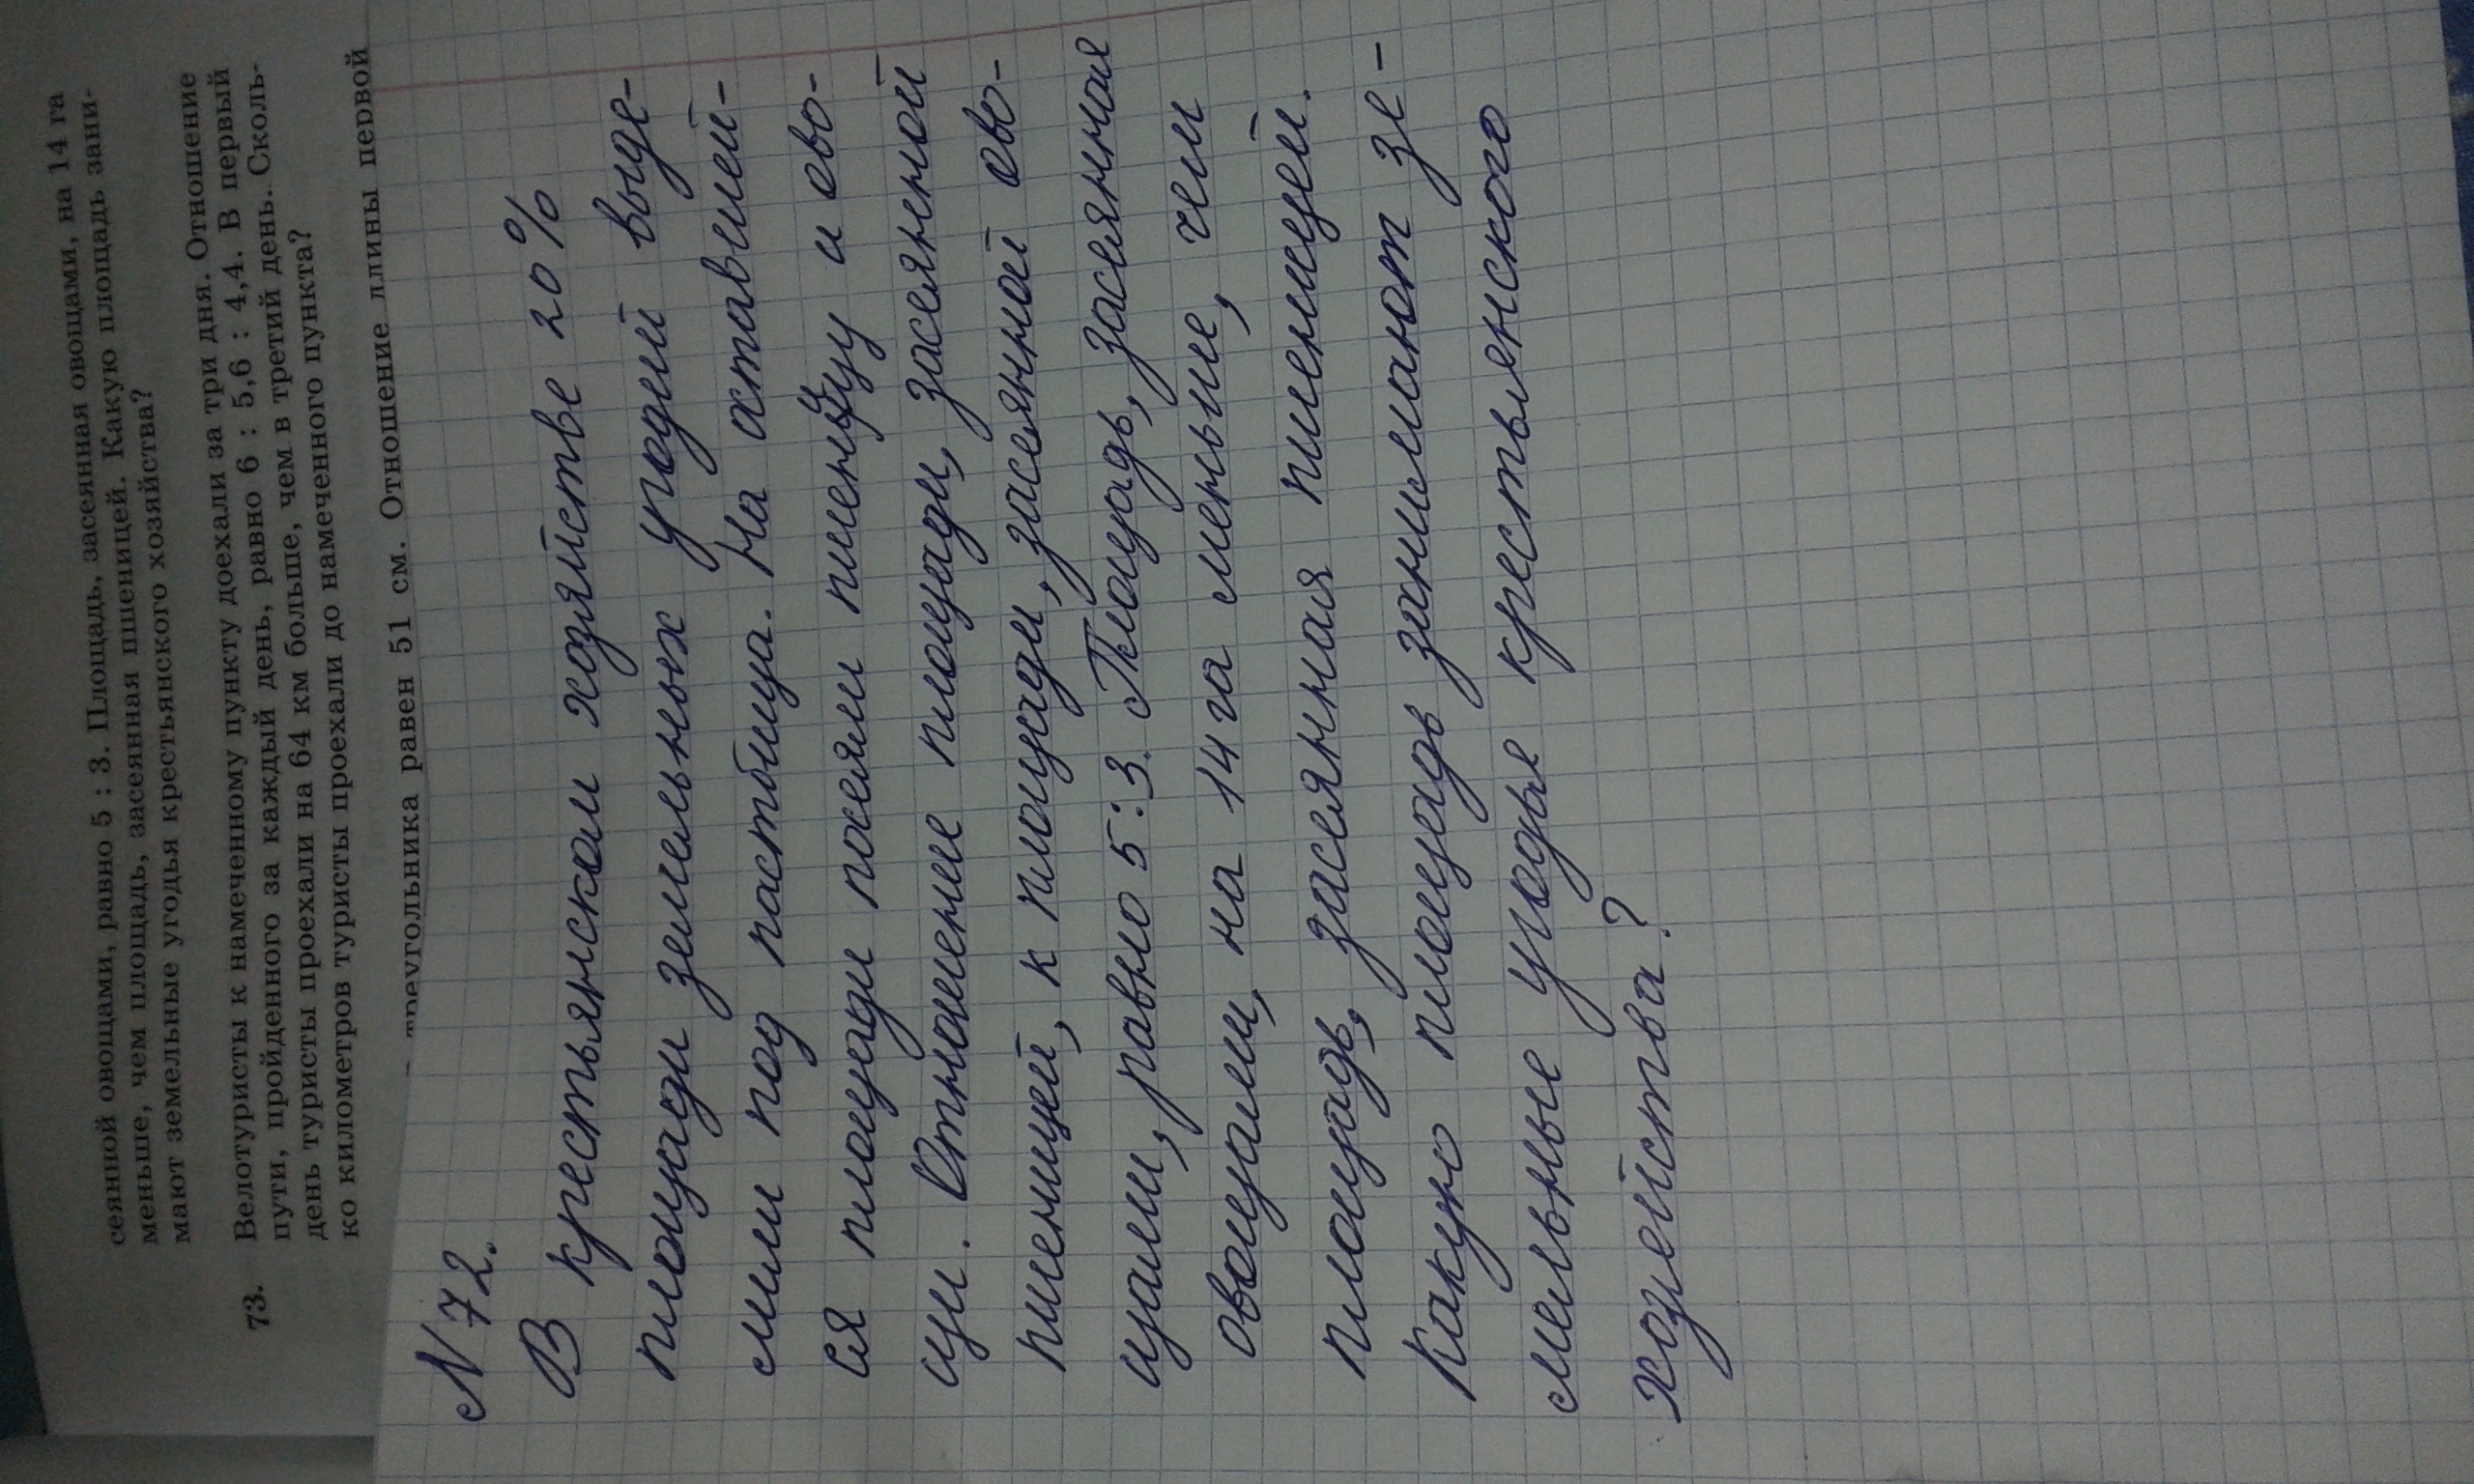 сеянной овощами, равно 5 : 3. Площадь, засеянная овощами, на 14 га
меньше, чем площадь, засеянная пшеницей. Какую площадь зани-
мают земельные угодья крестьянского хозяйства?
73. Велотуристы к намеченному пункту доехали за три дня. Отношение
пути, пройденного за каждый день, равно 6 : 5,6 : 4,4. В первый
день туристы проехали на 64 км больше, чем в третий день. Сколь-
ко километров туристы проехали до намеченного пункта?
треугольника равен 51 см. Отношение длины первой
N 72.
В крестьянском хозяйстве 20%
площади земельных угодий выде-
лили под пастбища. На оставшей-
ся площади посеяли пшеницу и ово-
щи. Отношение площади, засеянной
пшеницей, к площади, засеянной ово-
щами, равно 5:3. Площадь, засеянная
овощами, на 14 га меньше, чем
площадь, засеянная пшеницей.
Какую площадь занимают зе-
мельные угодье крестьянского
хозейства?